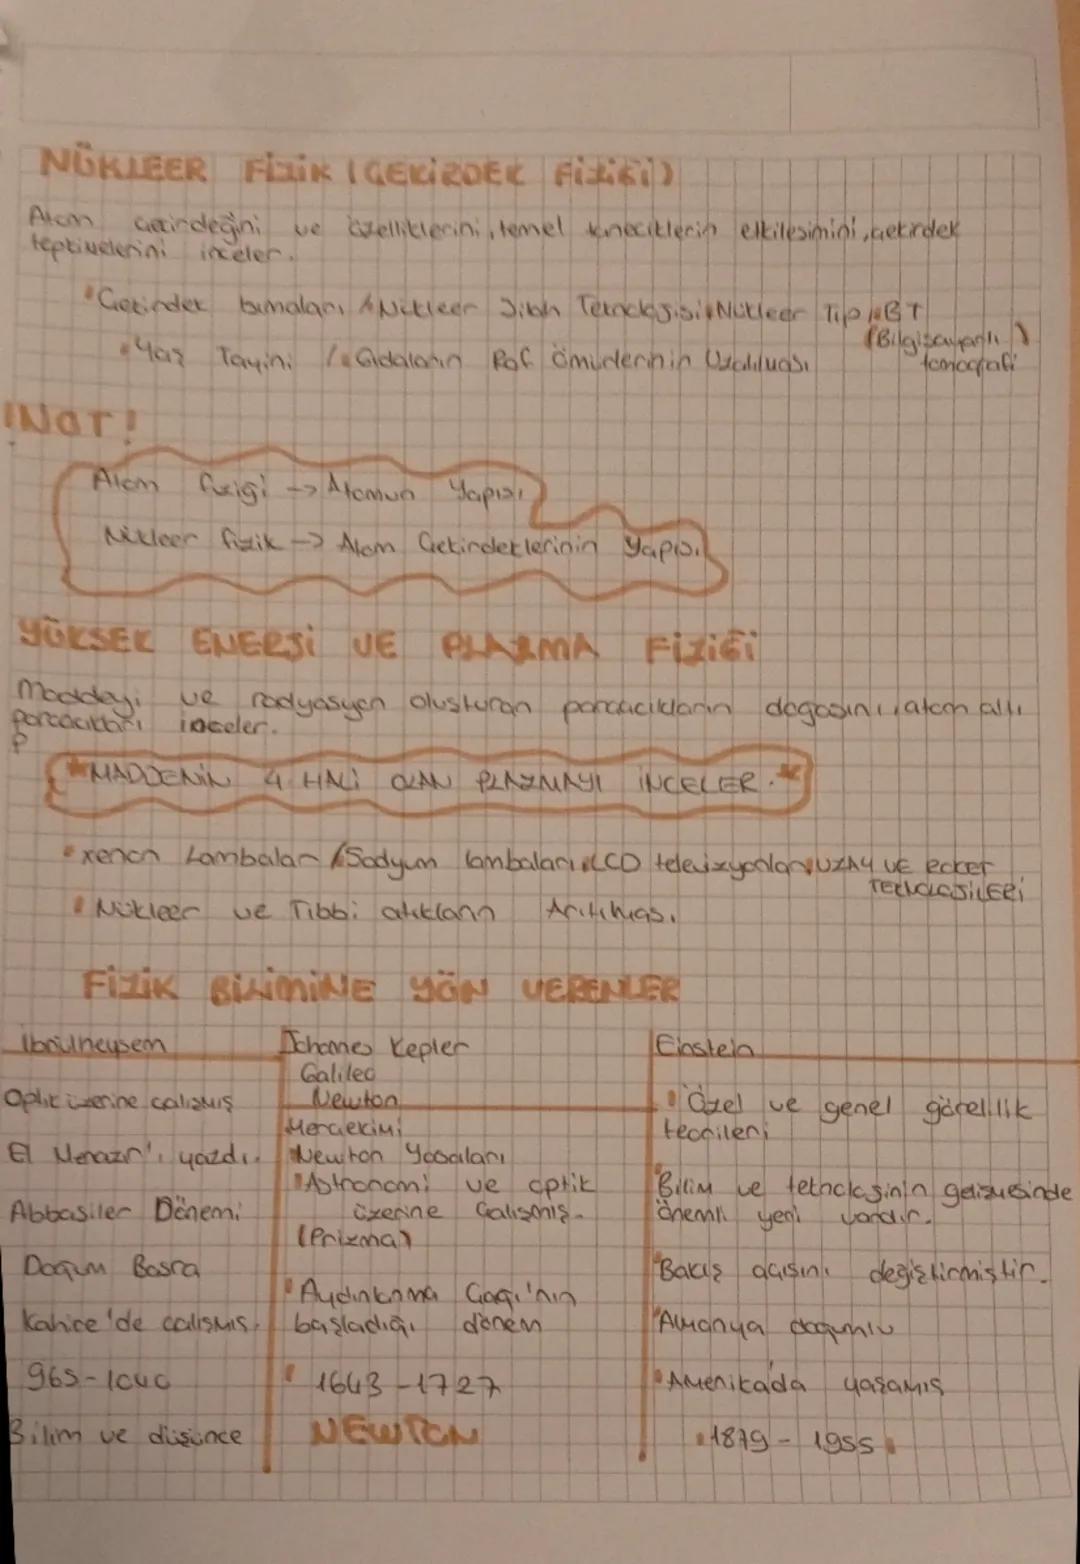 NÜKLEER FİZİK (ÇEKİRDEK FİZİĞİ)
Atom çekirdeğini ve özelliklerini, temel kuvvetlerin etkileşimini, çekirdek
tepkimelerini inceler.
Çekirdek bombaları Nükleer Silah Teknolojisi Nükleer Tıp BT
(Bilgisayarlı)
Yaş Tayini Gıdaların Raf Ömürlerinin Uzatılması
tomografi
!NOT!
Atom fiziği -> Atomun Yapısı
Nükleer fizik -> Atom Çekirdeklerinin Yapısı
YÜKSEK ENERJİ VE PLAZMA FİZİĞİ
Maddeyi ve radyasyon oluşturan parçacıkların doğasını, atom altı
parçacıkları inceler.
P
*MADDENİN 4 HALİ OLAN PLAZMAYI İNCELER.*
xenon Lambaları Sodyum lambaları LCD televizyonlar UZAY VE ROKET
TEKNOLOJİLERİ
Nükleer ve Tıbbi atıkların Arıtılması.
FİZİK BİLİMİNE YÖN VERENLER
İbnülheysem Johannes Kepler Einstein
Galileo
Optik üzerine çalışmış Newton Özel ve genel görelilik
Merçekimi teorileri
El Menazır'ı yazdı. Newton Yasaları
Astronomi ve optik Bilim ve teknolojinin gelişmesinde
Abbasiler Dönemi üzerine çalışmış. önemli yeri vardır.
(Prizma)
Doğum Basra Bakış açısını değiştirmiştir.
Aydınlanma Çağı'nın
Kahire'de çalışmış. başladığı dönem Almanya doğumlu
965-1040 1643-1727 Amerika'da yaşamış
Bilim ve düşünce NEWTON 1879-1955